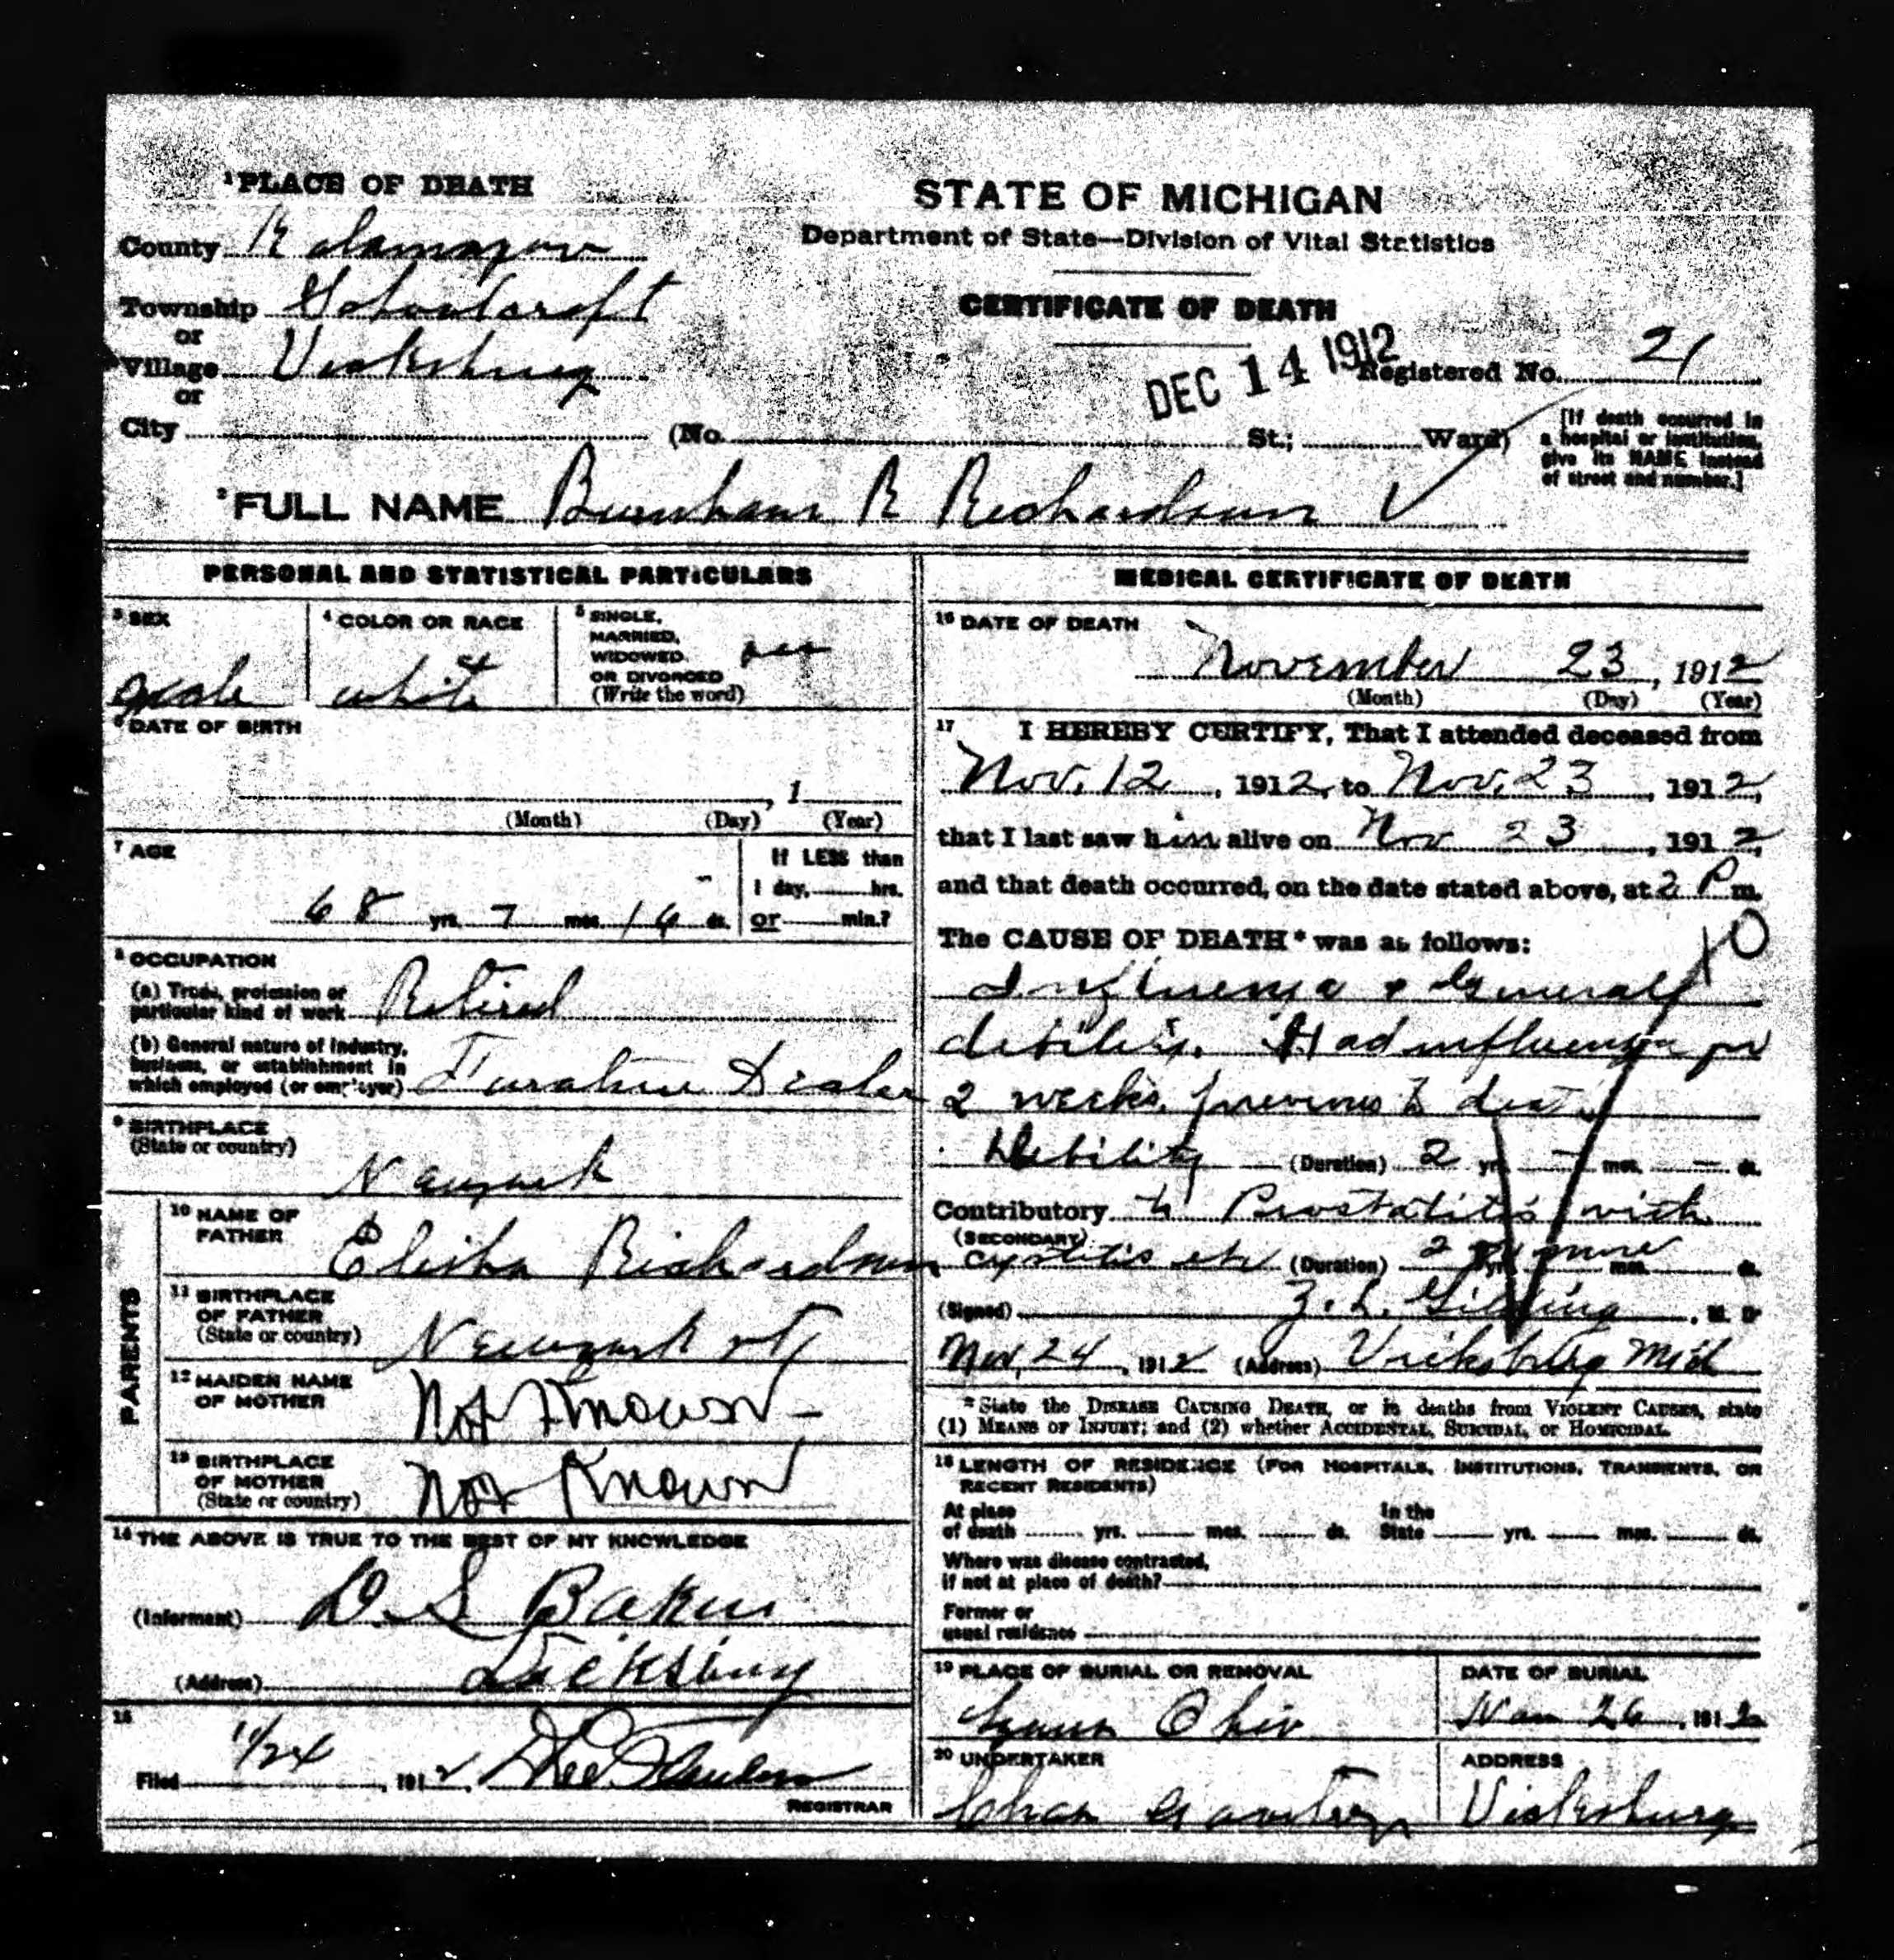 1 PLACE OF DEATH
STATE OF MICHIGAN
Department of State—Division of Vital Statistics
County Kalamazoo
Township Schoolcraft
or
Village Vicksburg
or
City (No. St.; Ward)
CERTIFICATE OF DEATH
DEC 14 1912
Registered No. 21
[If death occurred in
a hospital or institution,
give its NAME instead
of street and number.]
2 FULL NAME Burnham R Richardson
PERSONAL AND STATISTICAL PARTICULARS
3 SEX
male
4 COLOR OR RACE
white
5 SINGLE,
MARRIED,
WIDOWED
OR DIVORCED
(Write the word)
6 DATE OF BIRTH
, 1
(Month) (Day) (Year)
7 AGE
68 yrs. 7 mos. 16 ds.
If LESS than
1 day, hrs.
or min.?
8 OCCUPATION
(a) Trade, profession or
particular kind of work Retired
(b) General nature of industry,
business, or establishment in
which employed (or employer) Dealer
9 BIRTHPLACE
(State or country)
Newyork
PARENTS
10 NAME OF
FATHER
Elisha Richardson
11 BIRTHPLACE
OF FATHER
(State or country)
Newyork
12 MAIDEN NAME
OF MOTHER
Not Known
13 BIRTHPLACE
OF MOTHER
(State or country)
Not Known
14 THE ABOVE IS TRUE TO THE BEST OF MY KNOWLEDGE
(Informant) D. S Baker
(Address) Vicksburg
15
Filed 11/24, 1912
REGISTRAR
MEDICAL CERTIFICATE OF DEATH
16 DATE OF DEATH
November 23, 1912
(Month) (Day) (Year)
17 I HEREBY CERTIFY, That I attended deceased from
Nov. 12, 1912, to Nov. 23, 1912,
that I last saw him alive on Nov 23, 1912,
and that death occurred, on the date stated above, at 2 P m.
The CAUSE OF DEATH* was as follows:
10
Influenza & General
debility. Had influenza for
2 weeks, previous to death
Debility (Duration) 2 yrs. - mos. - ds.
Contributory to Prostatitis with
(SECONDARY)
cystitis etc (Duration) 2 yrs. more mos. ds.
(Signed) , M. D
Nov, 24, 1912 (Address) Vicksburg Mich
*State the DISEASE CAUSING DEATH, or in deaths from VIOLENT CAUSES, state
(1) MEANS OF INJURY; and (2) whether ACCIDENTAL, SUICIDAL, or HOMICIDAL.
18 LENGTH OF RESIDENCE (FOR HOSPITALS, INSTITUTIONS, TRANSIENTS, OR
RECENT RESIDENTS)
At place
of death yrs. mos. ds.
In the
State yrs. mos. ds.
Where was disease contracted,
if not at place of death?
Former or
usual residence
19 PLACE OF BURIAL OR REMOVAL
Ohio
DATE OF BURIAL
Nov 26, 1912
20 UNDERTAKER
Chas
ADDRESS
Vicksburg